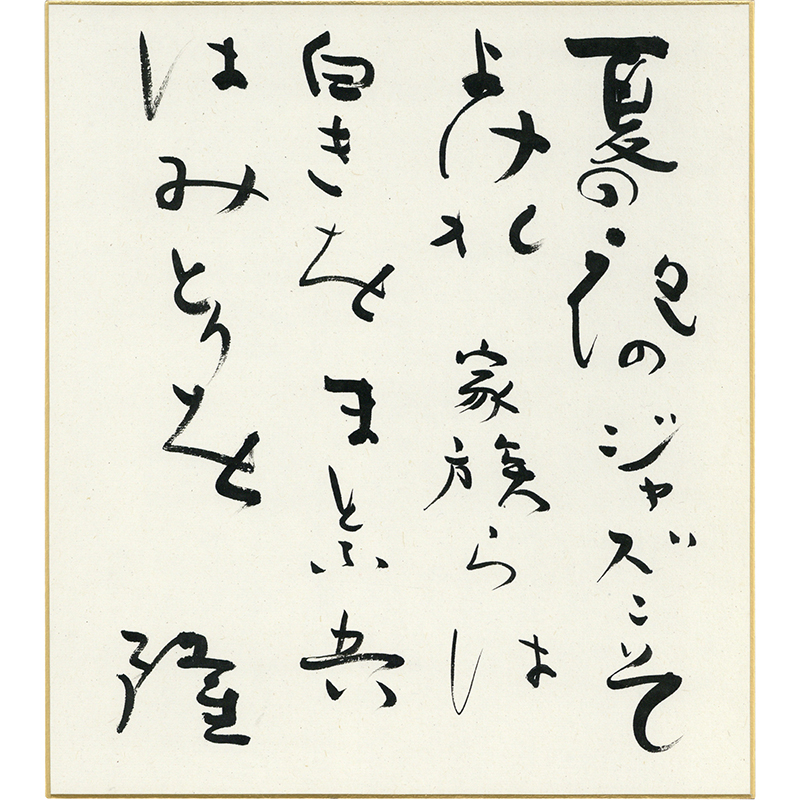 夏の夜のジャズこそ
よけれ 家族らは
白きをまとふ 吾
はみとりを 隆